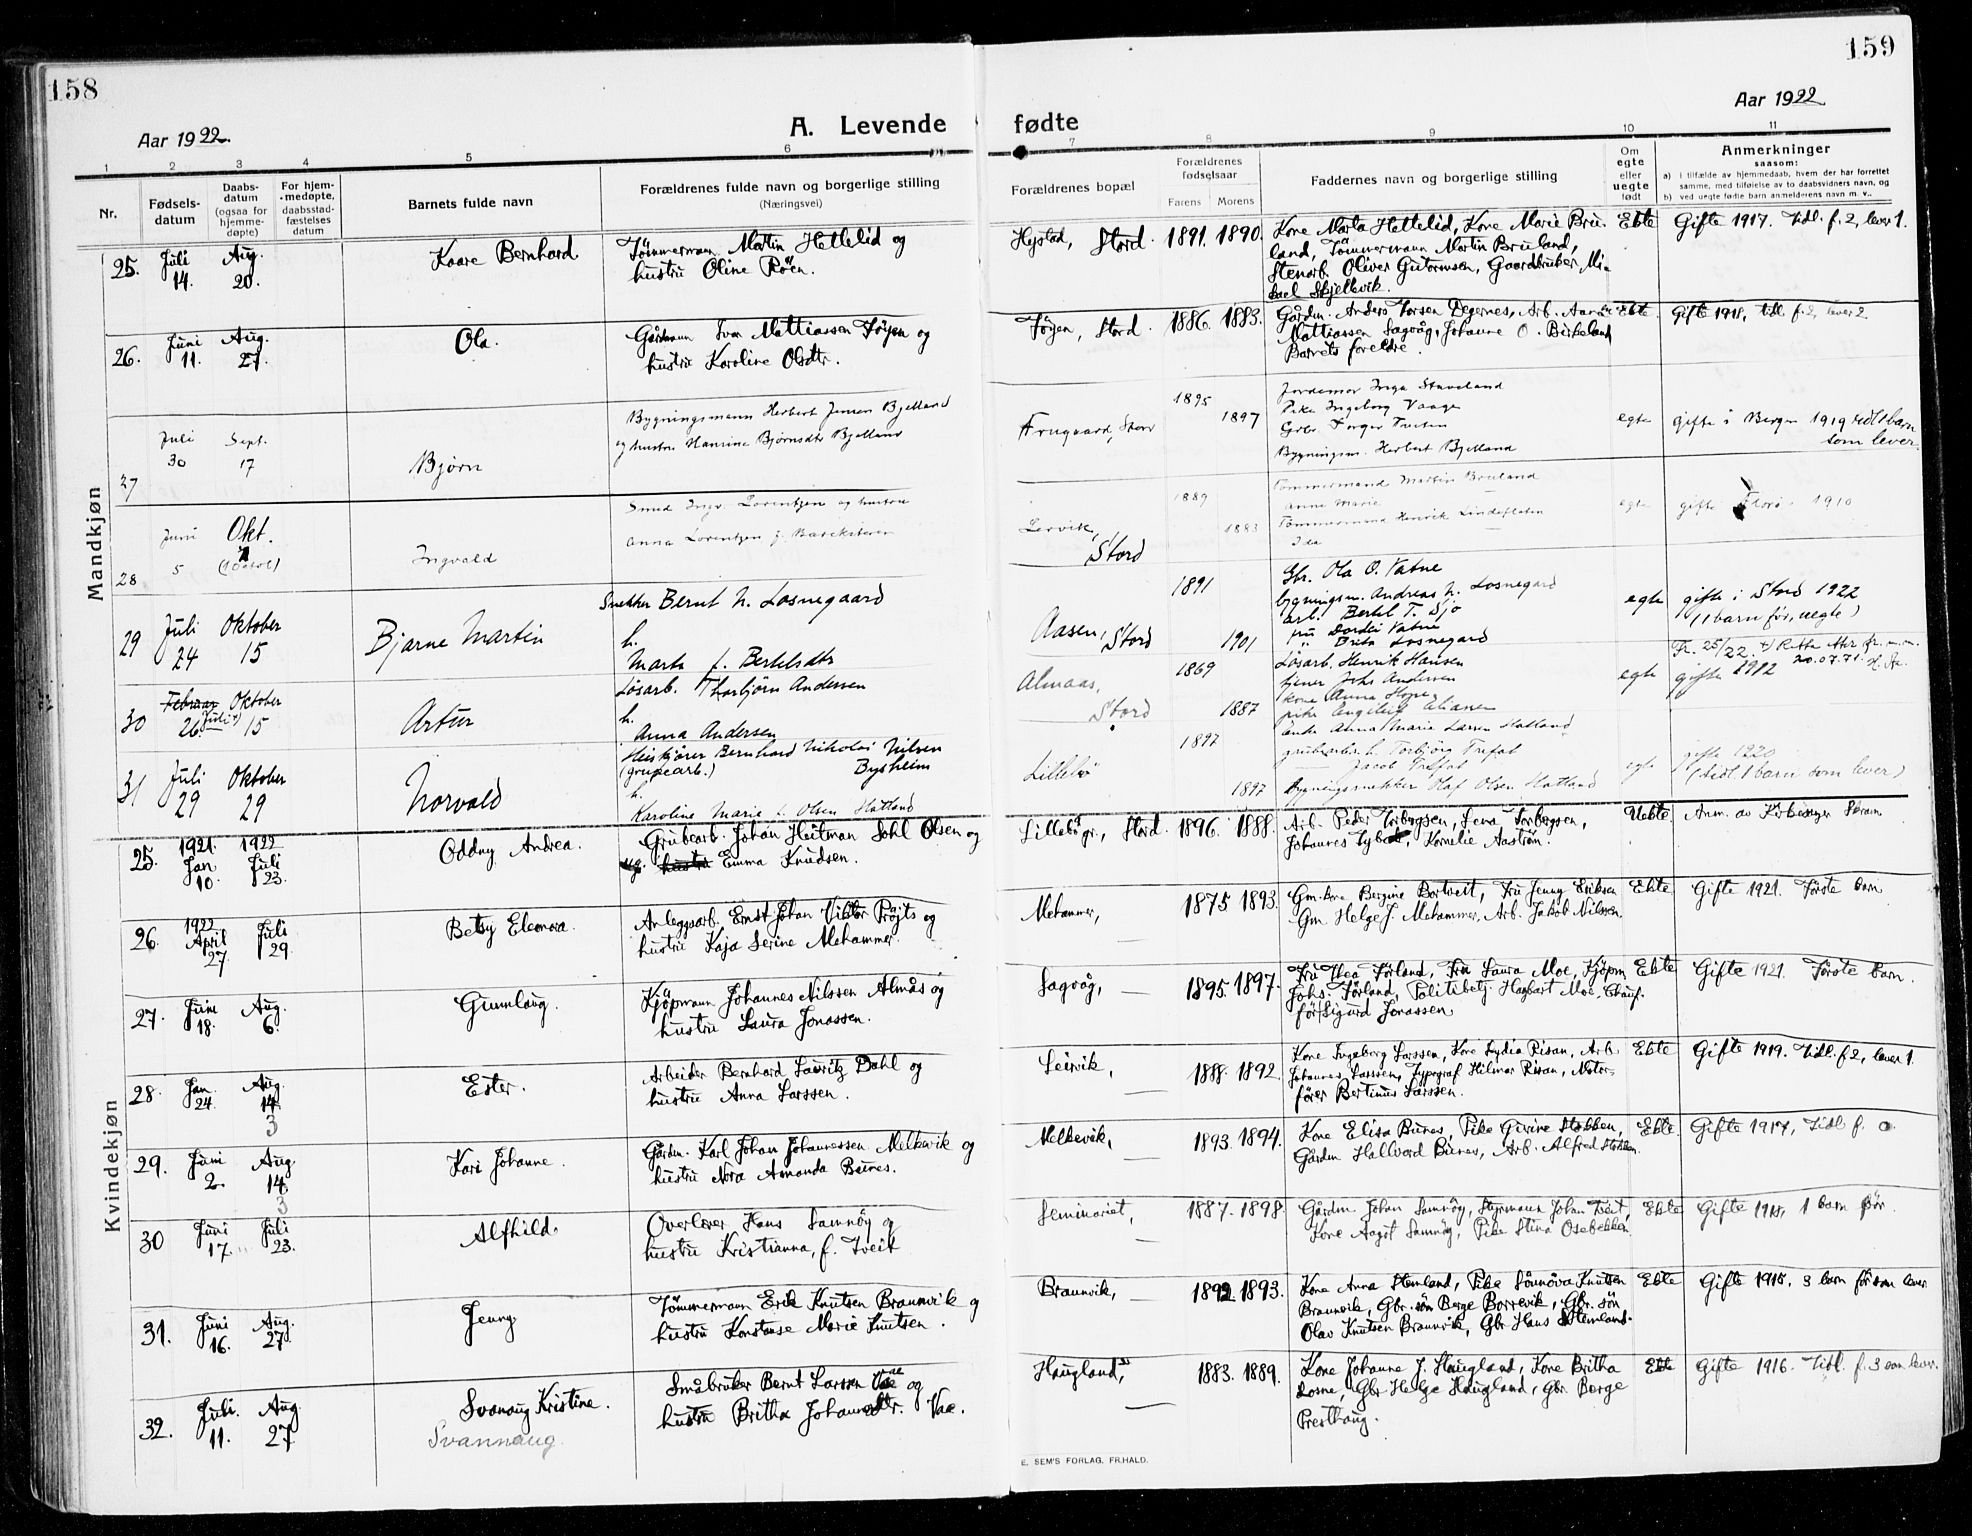 158
159
Aar 1922.
A. Levende fødte
Aar 1922
1 2 3 4 5 6 7 8 9 10 11
Nr.
Fødsels-datum
Daabs-datum (ogsaa for hjemme-døpte)
For hjem-medøpte, daabsstad-fæstelses datum
Barnets fulde navn
Forældrenes fulde navn og borgerlige stilling (Næringsvei)
Forældrenes bopæl
Forældrenes fødselsaar
Farens Morens
Faddernes navn og borgerlige stilling
Om egte eller uegte født
Anmerkninger
saasom:
a) i tilfælde av hjemmedaab, hvem der har forrettet samme, med tilføielse av to daabsvidners navn, og
b) ved uegte fødte barn anmelderens navn m. v..
Mandkjøn
25. Juli 14. Aug. 20. Kaare Bernhard
Tømmermann Martin Hettelid og
hustru Oline Røen.
Hystad, Stord. 1891. 1890.
Kone Marta Hettelid, Kone Marie Bru-
land, Tømmermann Martin Bruland,
Stenarb. Oliver Gutormsen, Gaardbruker Mi-
kael Skjellevik.
Ekte Gifte 1917. Tidl. f. 2, lever 1.
26. Juni 11. Aug. 27. Ola.
Gårdmann Mattiassen Tøyen og
hustru Karoline Olsdtr.
Tøyen, Stord. 1886. 1883.
Gårdm. Anders Degernes, Arb.
Mattiassen Sagvåg, Johanne O. Birkeland
Barnets foreldre.
Ekte Gifte 1918, tidl. f. 2, lever 2
27 Juli 30 Sept. 17 Bjørn
Bygningsmann Herbert Jensen Bjelland
og hustru Hansine Bjørnsdtr Bjelland
Frugaard, Stord 1895 1897
Jordemor Inga Staveland
Pike Ingeborg Vaage
Gbr. Torger
Bygningsm. Herbert Bjelland
egte gifte i Bergen 1919 tidl 1 barn
som lever
28 Juni 5 Okt. Ingvald
Smed Ingv. Lorentzen og hustru
Anna Lorentzen f.
Lervik, Stord 1889 1883
Tømmermand Martin Bruland
Anna Marie
Tømmermand Henrik Lindefleten
Ida
egte gifte 1910
29 Juli 24 Oktober 15 Bjarne Martin
Snekker Bernt N. Losnegaard
h.
Marta f. Bertelsdtr
Aasen, Stord 1891 1901
Gbr. Ola O. Vatne
bygningsm. Andreas N. Losnegard
arb. Bertel T. Sjo
fru Dordei Vatne
" Brita Losnegard
egte gifte i Stord 1922
(1 barn før, uegte)
30 Februar 26. Juli +) Oktober 15 Artur
Løsarb. Thorbjørn Andersen
h.
Anna Andersen
Almaas, Stord 1869 1887
Løsarb. Henrik Hansen
tjener Johs Andersen
kone Anna Hope
pike
enke Anna Marie Larsen Hatland
egte gifte 1912
Fr. 25/22. +) Retta
20.07.71.
31 Juli 29 Oktober 29 Norvald
Heiskjører Bernhard Nikolai Nilsen
(grupearb.) Bysheim
h.
Karoline Marie f. Olsen Hatland
Lillebø 1897 1897
grubearb. h. Torbjørg Trefal
Jacob Trefal
Bygningssnekker Olaf Olsen Hatland
egte gifte 1920
(tidl 1 barn som lever)
Kvindekjøn
25. 1921. Jan 10. 1922 Juli 23. Oddny Andrea.
Grubearb. Johan Heitman Dahl Olsen og
ug. hustru Emma Knudsen.
Lillebø gr., Stord. 1896. 1888.
Arb. Peder Torbergsen, Torbergsen,
Johannes , Kornelie Aastrøm.
Uekte Anm. av Kirkesanger Skram
26. 1922 April 27 Juli 29. Betsy Eleonora.
Anleggsarb. Ernst Johan Viktor Frøyts og
hustru Kaja Serine Mehammer.
Mehammer, — 1875 1893.
Gm. kone Bergine Bortveit, Fru Jenny Eriksen
Gm Helge J. Mehammer, Arb. Jakob Nilssen.
Ekte Gifte 1921. Første barn
27. Juni 18. Aug. 6. Gunnlaug.
Kjøpmann Johannes Nilssen Almås og
hustru Laura Jonassen.
Sagvåg, — 1895. 1897.
Fru Thea Førland, Fru Laura Moe, Kjøpm
Johs. Førland, Politibetj. Hagbart Moe, Chauf-
før Sigurd Jonassen
Ekte Gifte 1921. Første barn.
28. Jan. 24. Aug. 14. 3 Ester.
Arbeider Bernhard Lauritz Dahl og
hustru Anna Larssen.
Leirvik, — 1888. 1892.
Kone Ingeborg Larssen, Kone Lydia Risan, Arb.
Johannes Larssen, Typograf Hilmar Risan, Motor-
fører Bertinus Larssen.
Ekte Gifte 1919. Tidl. f. 2, lever 1.
29. Juni 2. Aug 14. 3 Kari Johanne.
Gårdm. Karl Johan Johannessen Melkevik og
hustru Nora Amanda Bunes.
Melkevik, — 1893. 1894.
Kone Elisa Bunes, Pike Stokken,
Gårdm Hallvard Bunes, Arb. Alfred Stokken.
Ekte. Gifte 1917, Tidl f. 0
30 Juni 17. Juli 23. Alfhild
Overlærer Hans Samnøy og
hustru Kristianna, f. Tveit
Seminariet, — 1887. 1898
Gårdm Johan Samnøy, Styrmann Johan Tveit,
Kone Aagot Samnøy, Pike Stina Osebakken.
Ekte Gifte 1918, 1 barn før.
31. Juni 16. Aug. 27. Jenny
Tømmermann Erik Knutsen Braunvik og
hustru Konstanse Marie Knutsen.
Braunvik, — 1892. 1893.
Kone Anna Stemland, Pike Sunnøva Knutsen
Braunvik, Gbr. søn Berge Borrevik, Gbr. søn
Olav Knutsen Braunvik, Gbr Hans Stemland.
Ekte Gifte 1915. 3 barn før som lever
32. Juli. 11. Aug. 27 Svanaug Kristine.
Svannaug.
Småbruker Bernt Larssen Vae og
hustru Britha Johannesdtr. Vae.
Haugland, — 1883. 1889.
Kone Johanne J. Haugland, Kone Britha
Losne, Gbr Helge Haugland, Gbr. Berge
Presthaug.
Ekte Gifte 1916. Tidl. f. 3 som lever.
E. SEM'S FORLAG, FR.HALD.